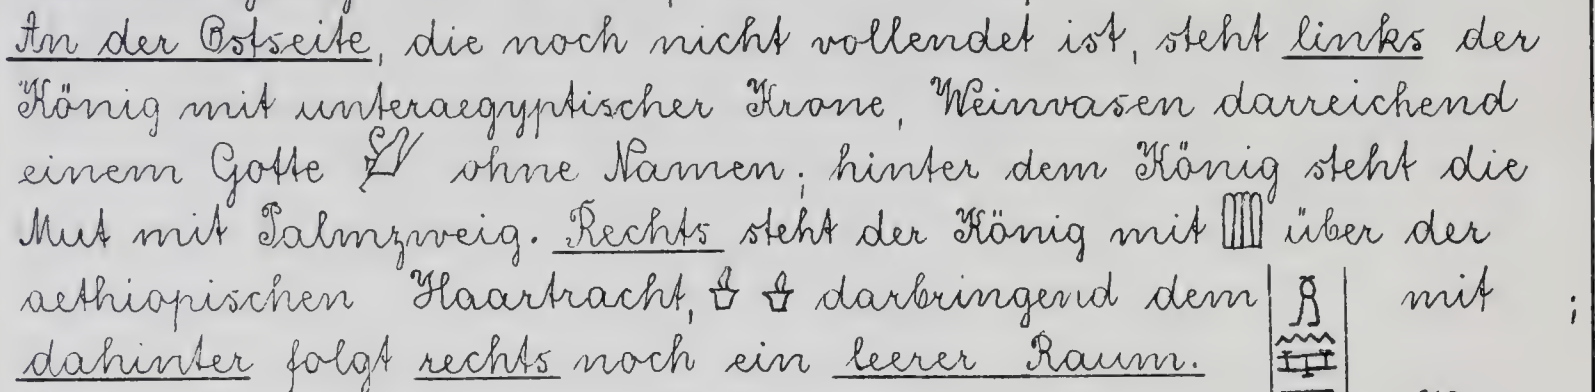 An der Ostseite, die noch nicht vollendet ist, steht links der
König mit unteraegyptischer Krone, Weinvasen darreichend
einem Gotte ohne Namen; hinter dem König steht die
Mut mit Palmzweig. Rechts steht der König mit über der
aethiopischen Haartracht, darbringend dem mit ;
dahinter folgt rechts noch ein leerer Raum.